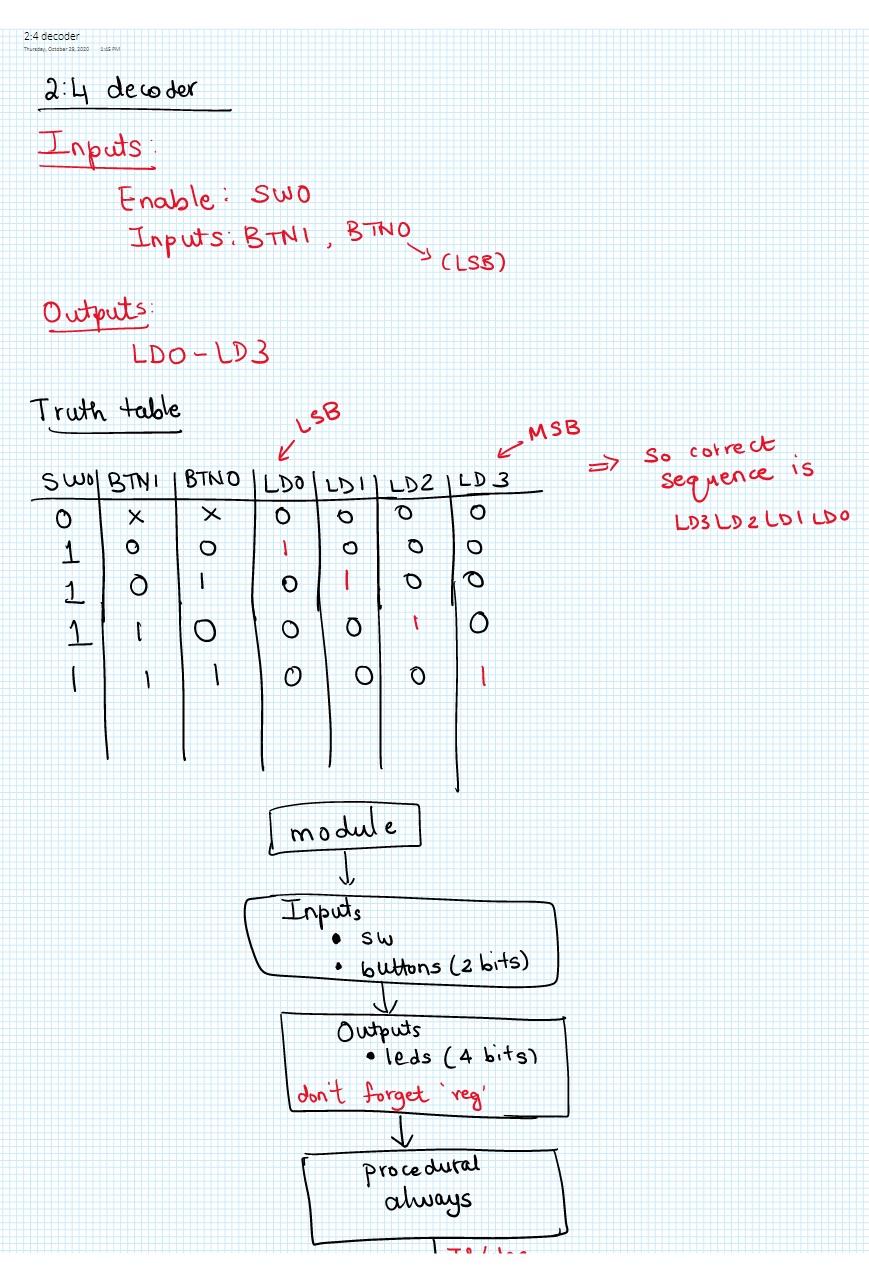 2:4 decoder
Thursday, October 29, 2020 1:45 PM
2:4 decoder
Inputs:
Enable: SW0
Inputs: BTN1, BTN0
(LSB)
Outputs:
LD0-LD3
Truth table
LSB
MSB
SW0 BTN1 BTN0 LD0 LD1 LD2 LD3
0 x x 0 0 0 0
1 0 0 1 0 0 0
1 0 1 0 1 0 0
1 1 0 0 0 1 0
1 1 1 0 0 0 1
⇒ So correct
sequence is
LD3 LD2 LD1 LD0
module
Inputs
• sw
• buttons (2 bits)
Outputs
• leds (4 bits)
don't forget 'reg'
procedural
always